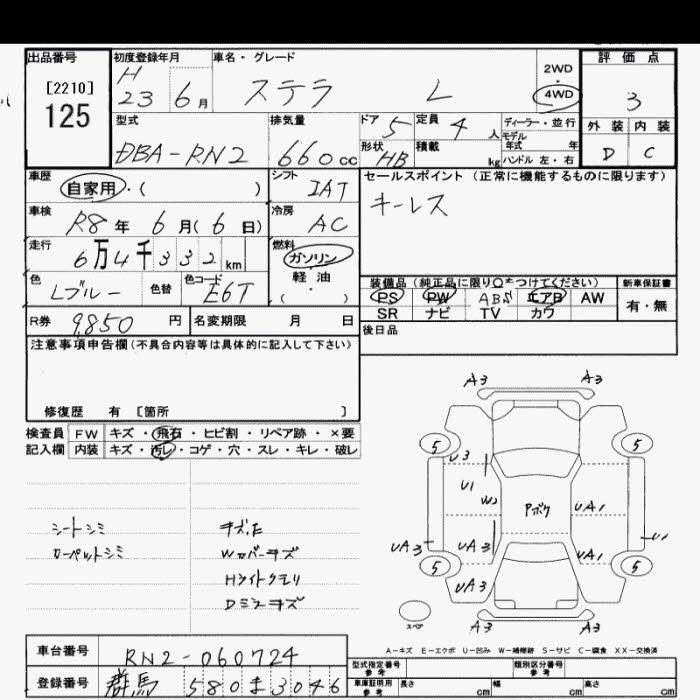 出品番号 初度登録年月 車名・グレード 評価点
[2210] 125
H 23 6 月
ステラ L
2WD ・ 4WD
3
型式 排気量 ドア 5 定員 4 人 ディーラー・並行 外装 内装
DBA-RN2 660 cc 形状 HB 積載 kg モデル年式 年 ハンドル 左・右 D C
車歴 シフト セールスポイント (正常に機能するものに限ります)
自家用・( ) IAT キーレス
車検 冷房
R8 年 6 月( 6 日) AC
走行 燃料
6万4千332 km ガソリン ・ 軽油
色 色替 色コード ( )
Lブルー E6T
装備品 (純正品に限り○*つけてください) 新車保証書
PS PW ABS エアB AW 有・無
SR ナビ TV カワ
R券 9,850 円 名変期限 月 日
後日品
注意事項申告欄(不具合内容等は具体的に記入して下さい)
修復歴 有 [箇所 ]
検査員 FW キズ・飛石・ヒビ割・リペア跡・×要
記入欄 内装 キズ・汚レ・コゲ・穴・スレ・キレ・破レ
A3 A3
5 5
U3
U1
W2 Pボケ UA1
UA3 UA3 UA1 U1
5 5
UA3
スペア
A3 A3
シートシミ
カーペットシミ
Wカバーキズ
Hライトクモリ
Dミラーキズ
A-キズ E-エクボ U-凹み W-補修跡 S-サビ C-腐食 XX-交換済
車台番号 RN2-060724
型式指定番号 参考 類別区分番号 参考
登録番号 群馬 580 ま 3046
車庫証明用 参考 長さ cm 幅 cm 高さ cm